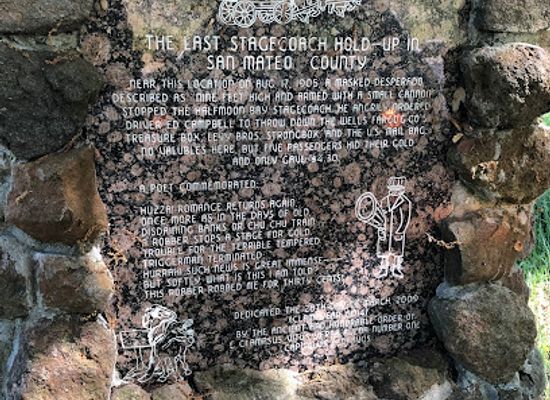 THE LAST STAGECOACH HOLD-UP IN
SAN MATEO COUNTY
NEAR THIS LOCATION ON AUG. 17, 1905, A MASKED DESPERADO
DESCRIBED AS "NINE FEET HIGH AND ARMED WITH A SMALL CANNON"
STOPPED THE HALFMOON BAY STAGECOACH. HE ANGRILY ORDERED
DRIVER ED CAMPBELL TO THROW DOWN THE WELLS FARGO & CO.
TREASURE BOX, LEVY BROS. STRONGBOX, AND THE U.S. MAIL BAG.
NO VALUBLES HERE, BUT FIVE PASSENGERS HID THEIR GOLD
AND ONLY GAVE $4.30.
A POET COMMEMORATED:
HUZZA! ROMANCE RETURNS AGAIN
ONCE MORE AS IN THE DAYS OF OLD
DISDAINING BANKS OR CHU CHU TRAIN
A ROBBER STOPS A STAGE FOR GOLD
TROUBLE FOR THE TERRIBLE TEMPERED
TRIGGERMAN TERMINATED:
HURRAH! SUCH NEWS IS GREAT IMMENSE
BUT SOFTLY WHAT IS THIS I AM TOLD
THIS ROBBER ROBBED ME FOR THIRTY CENTS!
DEDICATED THE 28TH MARCH, 2009
(CLAMPYEAR 6014)
BY THE ANCIENT AND HONORABLE ORDER OF
E CLAMPSUS VITUS NUMBER ONE